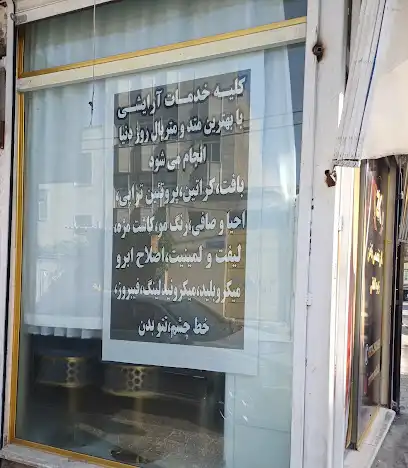 کلیه خدمات آرایشی
با بهترین متد و متریال روز دنیا
انجام می شود
بافت، کراتین، پروتئین تراپی،
احیا و صافی، رنگ مو، کاشت مژه،
لیفت و لمینیت، اصلاح ابرو
میکروبلید، میکرونیدلینگ، فیبروز،
خط چشم، تتو بدن